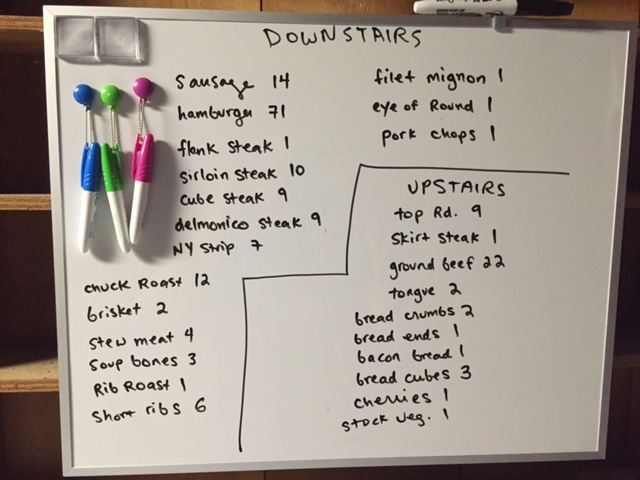 DOWNSTAIRS
Sausage 14
hamburger 71
flank steak 1
sirloin steak 10
cube steak 9
delmonico steak 9
NY strip 7
chuck Roast 12
brisket 2
stew meat 4
soup bones 3
Rib Roast 1
short ribs 6
filet mignon 1
eye of Round 1
pork chops 1
UPSTAIRS
top Rd. 9
skirt steak 1
ground beef 22
tongue 2
bread crumbs 2
bread ends 1
bacon bread 1
bread cubes 3
cherries 1
stock veg. 1